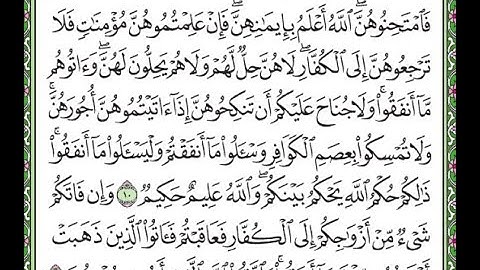 فَٱمْتَحِنُوهُنَّ ۖ ٱللَّهُ أَعْلَمُ بِإِيمَٰنِهِنَّ ۖ فَإِنْ عَلِمْتُمُوهُنَّ مُؤْمِنَٰتٍ فَلَا
تَرْجِعُوهُنَّ إِلَى ٱلْكُفَّارِ ۖ لَا هُنَّ حِلٌّ لَّهُمْ وَلَا هُمْ يَحِلُّونَ لَهُنَّ ۖ وَءَاتُوهُم
مَّآ أَنفَقُوا۟ ۚ وَلَا جُنَاحَ عَلَيْكُمْ أَن تَنكِحُوهُنَّ إِذَآ ءَاتَيْتُمُوهُنَّ أُجُورَهُنَّ ۚ
وَلَا تُمْسِكُوا۟ بِعِصَمِ ٱلْكَوَافِرِ وَسْـَٔلُوا۟ مَآ أَنفَقْتُمْ وَلْيَسْـَٔلُوا۟ مَآ أَنفَقُوا۟ ۚ
ذَٰلِكُمْ حُكْمُ ٱللَّهِ ۖ يَحْكُمُ بَيْنَكُمْ ۚ وَٱللَّهُ عَلِيمٌ حَكِيمٌ ١٠ وَإِن فَاتَكُمْ
شَىْءٌ مِّنْ أَزْوَٰجِكُمْ إِلَى ٱلْكُفَّارِ فَعَاقَبْتُمْ فَـَٔاتُوا۟ ٱلَّذِينَ ذَهَبَتْ